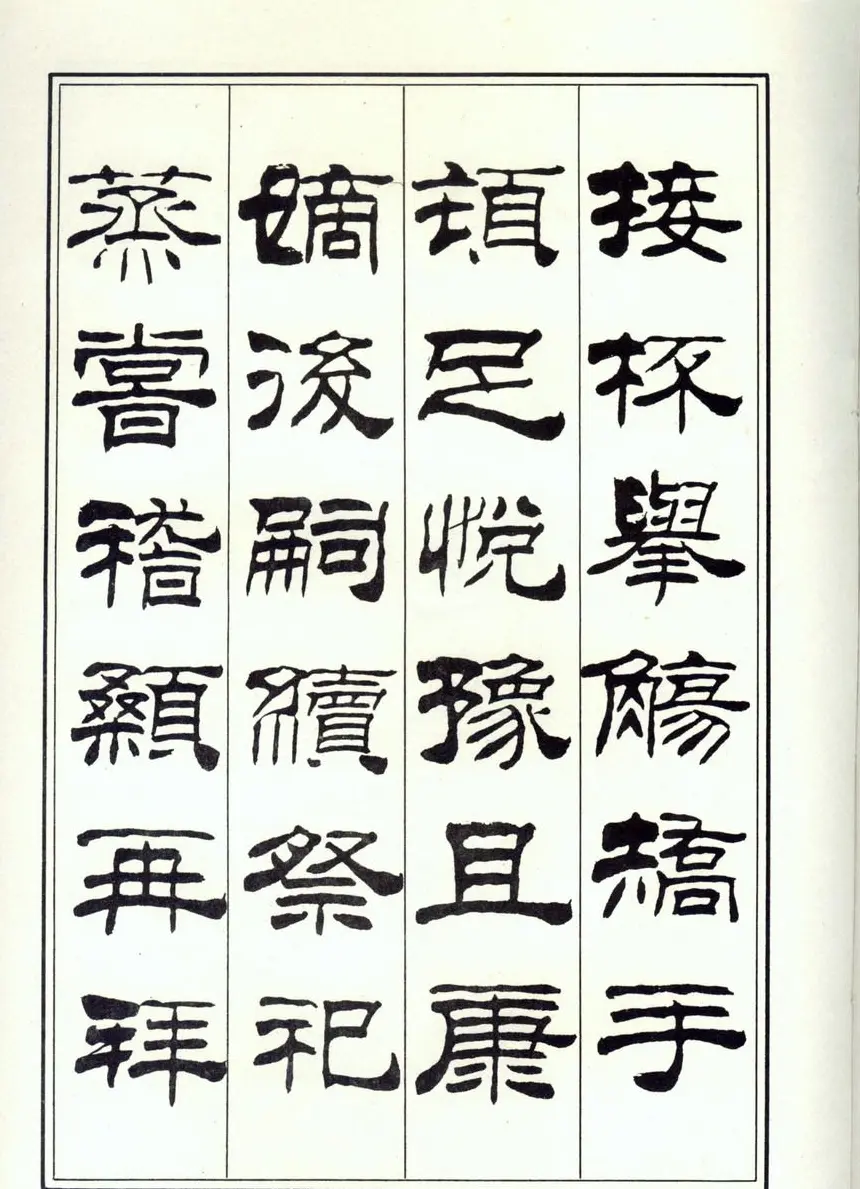 接杯舉觴矯手
頓足悅豫且康
嫡後嗣續祭祀
蒸嘗稽顙再拜